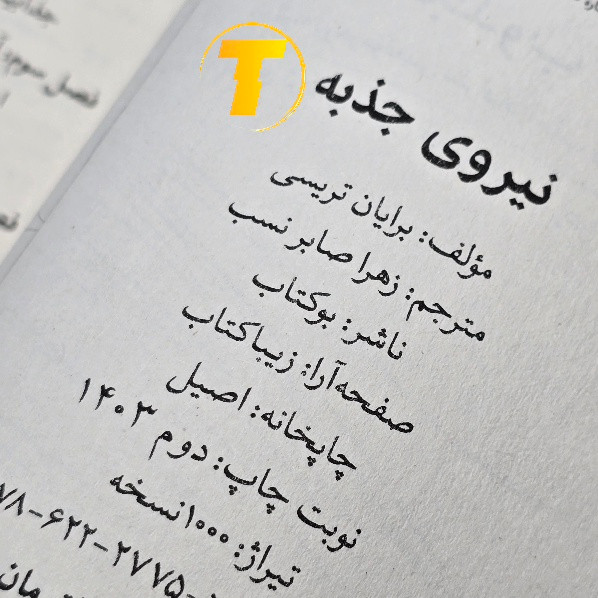 T
نیروی جذبه
مؤلف: برایان تریسی
مترجم: زهرا صابر نسب
ناشر: بوکتاب
صفحه‌آرا: زیباکتاب
چاپخانه: اصیل
نوبت چاپ: دوم ۱۴۰۳
تیراژ: ۱۰۰۰نسخه
۷۸-۶۲۲-۲۷۷۵-
فصل سوم: